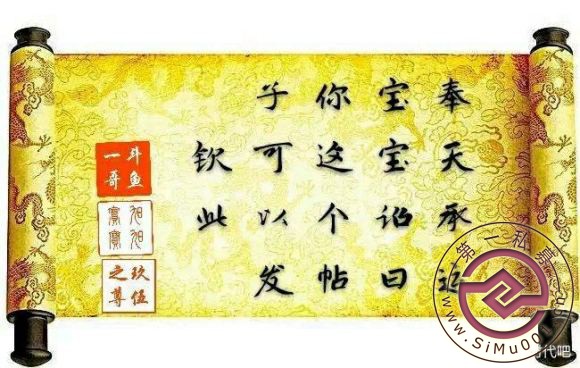 奉天承运
宝宝诏曰
你这个帖
子可以发
钦此
斗鱼
一哥
旭旭
寶寶
玖伍
之尊
第一私募
代吧